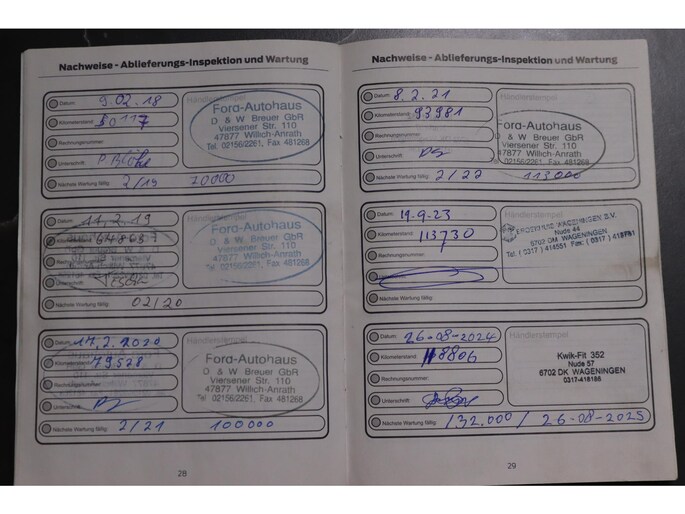 Nachweise - Ablieferungs-Inspektion und Wartung
Datum: 9.02.18
Händlerstempel
Kilometerstand: 50117
Rechnungsnummer:
Unterschrift:
Nächste Wartung fällig: 2/19 70000
Ford-Autohaus
D & W Breuer GbR
Viersener Str. 110
47877 Willich-Anrath
Tel. 02156/2261, Fax 481268
Datum: 11.2.19
Händlerstempel
Kilometerstand:
Unterschrift:
Nächste Wartung fällig: 02/20
Ford-Autohaus
D & W Breuer GbR
Viersener Str. 110
47877 Willich-Anrath
Tel. 02156/2261, Fax 481268
Datum: 17.2.2020
Händlerstempel
Kilometerstand: 79528
Rechnungsnummer:
Unterschrift:
Nächste Wartung fällig: 2/21 100000
Ford-Autohaus
D & W Breuer GbR
Viersener Str. 110
47877 Willich-Anrath
Tel. 02156/2261, Fax 481268
28
Nachweise - Ablieferungs-Inspektion und Wartung
Datum: 8.2.21
Händlerstempel
Kilometerstand: 93981
Rechnungsnummer:
Unterschrift:
Nächste Wartung fällig: 2/22 113000
Ford-Autohaus
D & W Breuer GbR
Viersener Str. 110
47877 Willich-Anrath
Tel. 02156/2261, Fax 481268
19-9-23
Kilometerstand: 113730
Rechnungsnummer:
Nächste Wartung fällig:
WAGENINGEN B.V.
Nude 44
6702 DM WAGENINGEN
Datum: 26-08-2024
Händlerstempel
Kilometerstand: 118806
Rechnungsnummer:
Unterschrift:
Nächste Wartung fällig: 132.000 / 26-08-2025
Kwik-Fit 352
Nude 57
6702 DK WAGENINGEN
0317-418186
29